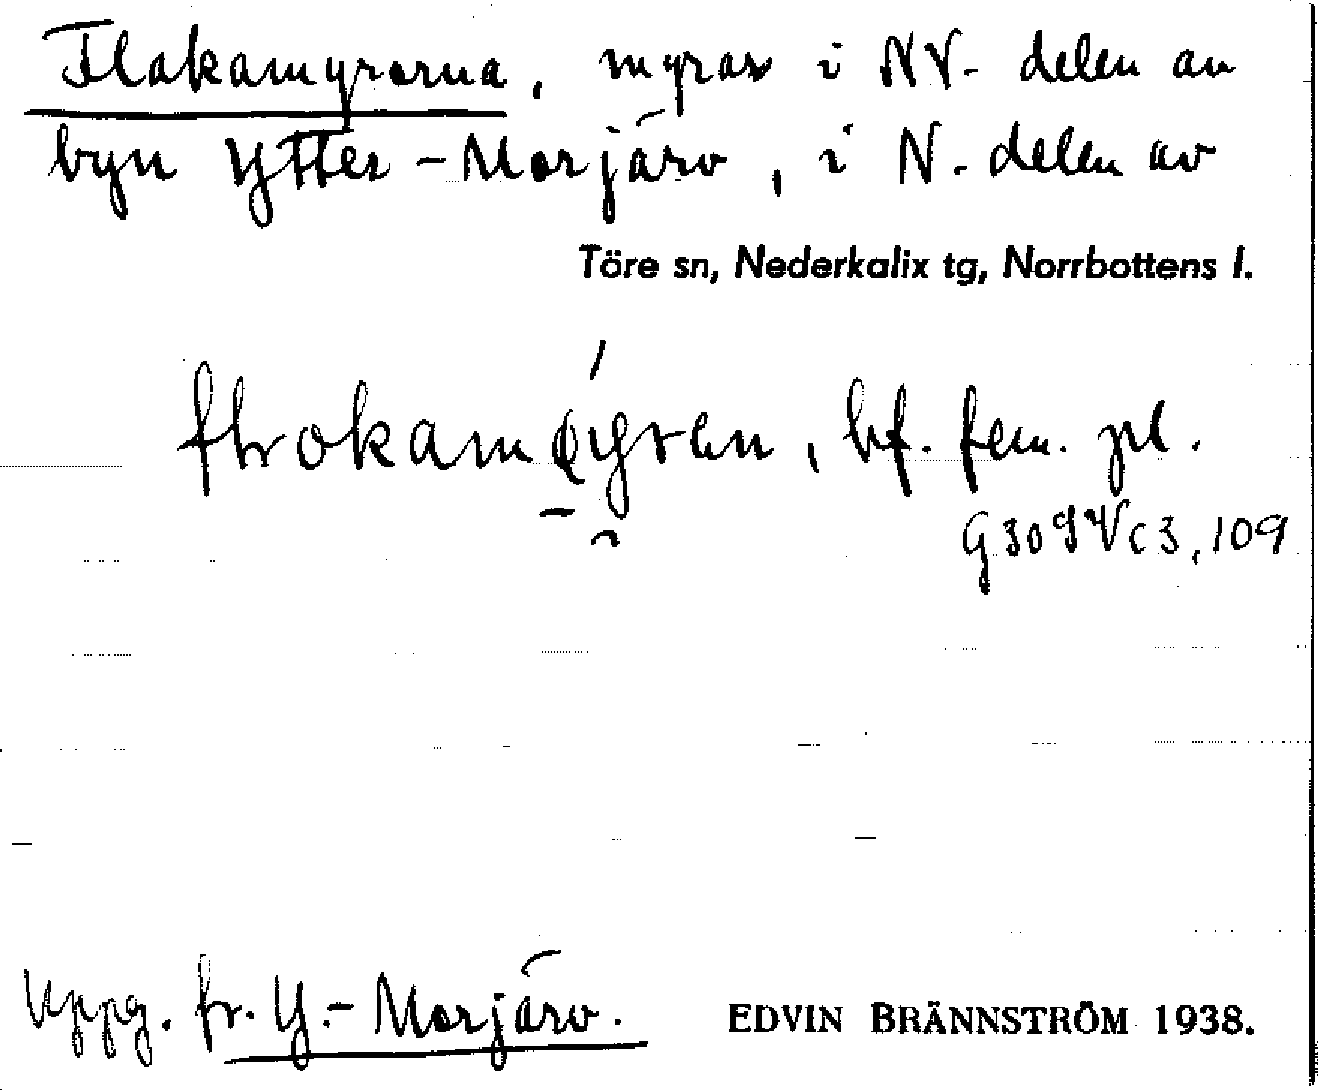 Flakamyrorna, myrar i NV. delen av
byn Ytter-Morjärv, i N. delen av
Töre sn, Nederkalix tg, Norrbottens l.
bf. fem. pl.
Uppg. fr. Y.-Morjärv.
EDVIN BRÄNNSTRÖM 1938.